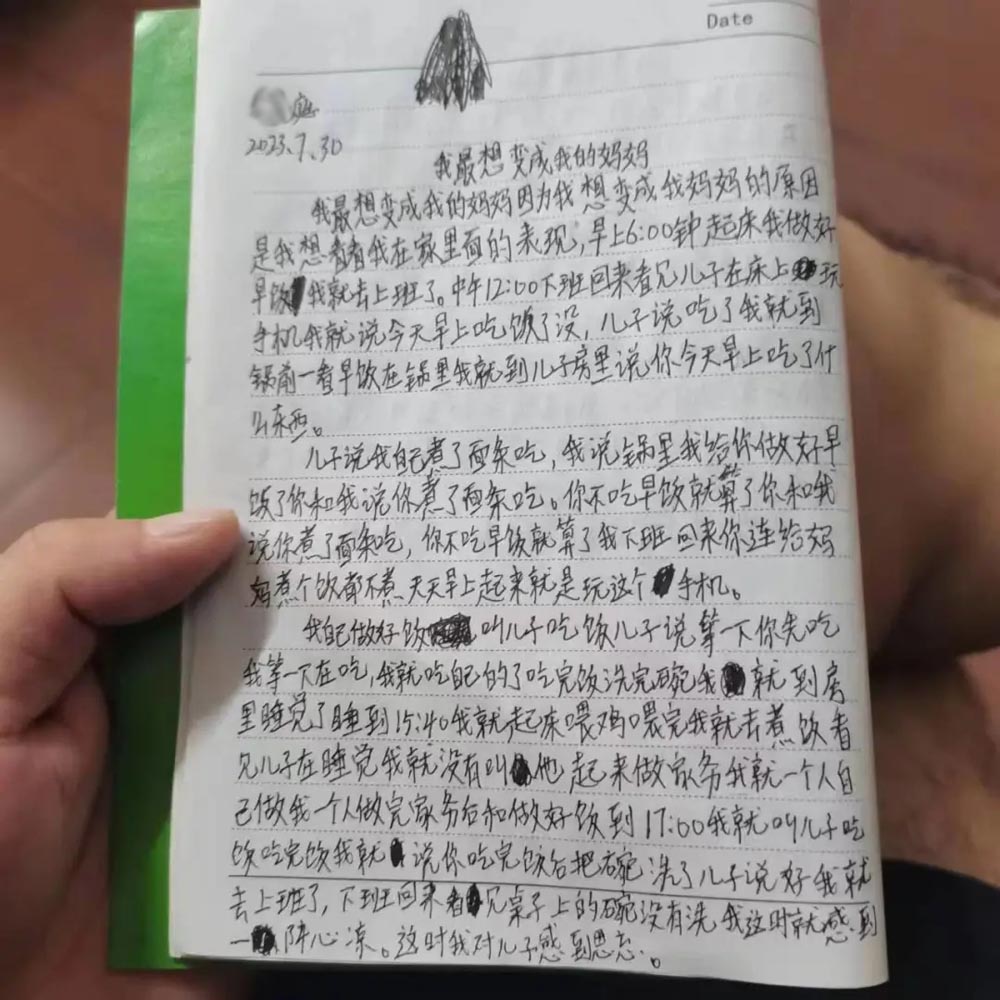 Date
2023.7.30
我最想变成我的妈妈
我最想变成我的妈妈因为我想变成我妈妈的原因
是我想看看我在家里面的表现,早上6:00钟起床我做好
早饭我就去上班了。中午12:00下班回来看见儿子在床上玩
手机我就说今天早上吃饭了没,儿子说吃了我就到
锅前一看早饭在锅里我就到儿子房里说你今天早上吃了什
么东西。
儿子说我自己煮了面条吃,我说锅里我给你做好早
饭了你和我说你煮了面条吃。你不吃早饭就算了你和我
说你煮了面条吃,你不吃早饭就算了我下班回来你连给妈
妈煮个饭都不煮天天早上起来就是玩这个手机。
我自己做好饭叫儿子吃饭儿子说等一下你先吃
我等一下在吃,我就吃自己的了吃完饭洗完碗我就到房
里睡觉了睡到15:40我就起床喂鸡喂完我就去煮饭看
见儿子在睡觉我就没有叫他起来做家务我就一个人自
己做我一个人做完家务台和做好饭到17:00我就叫儿子吃
饭吃完饭我就说你吃完饭台把碗洗了儿子说好我就
去上班了,下班回来看见桌子上的碗没有洗我这时就感到
一阵心凉。这时我对儿子感到。